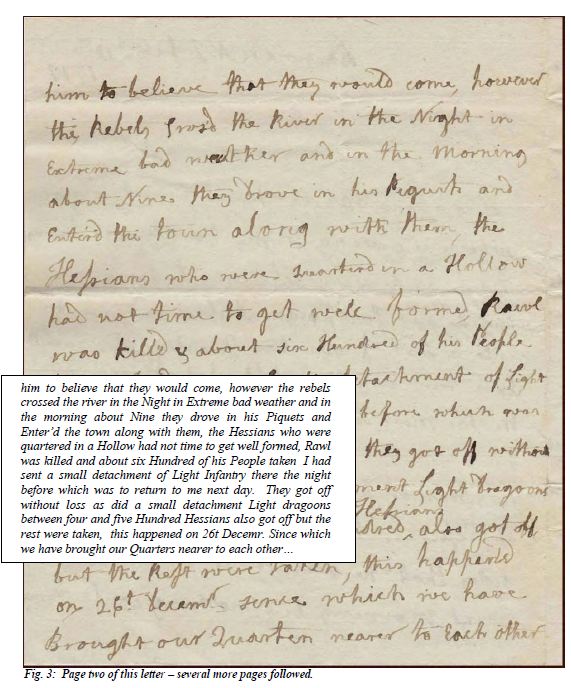 him to believe that they would come, however
the Rebels Cross'd the River in the Night in
Extreme bad weather and in the Morning
about Nine they drove in his Piquets and
Enter'd the town along with them, the
Hessians who were Quarterd in a Hollow
had not time to get well formed, Rawl
was killed & about six Hundred of his People
detachment of Light
before which was
they got off without
ment Light Dragoons
Hessians
dred, also got off
but the Rest were taken, this happen'd
on 26t. Decemr. sense which we have
Brought our Quarters nearer to Each other
him to believe that they would come, however the rebels
crossed the river in the Night in Extreme bad weather and in
the morning about Nine they drove in his Piquets and
Enter'd the town along with them, the Hessians who were
quartered in a Hollow had not time to get well formed, Rawl
was killed and about six Hundred of his People taken I had
sent a small detachment of Light Infantry there the night
before which was to return to me next day. They got off
without loss as did a small detachment Light dragoons
between four and five Hundred Hessians also got off but the
rest were taken, this happened on 26t Decemr. Since which
we have brought our Quarters nearer to each other…
Fig. 3: Page two of this letter – several more pages followed.